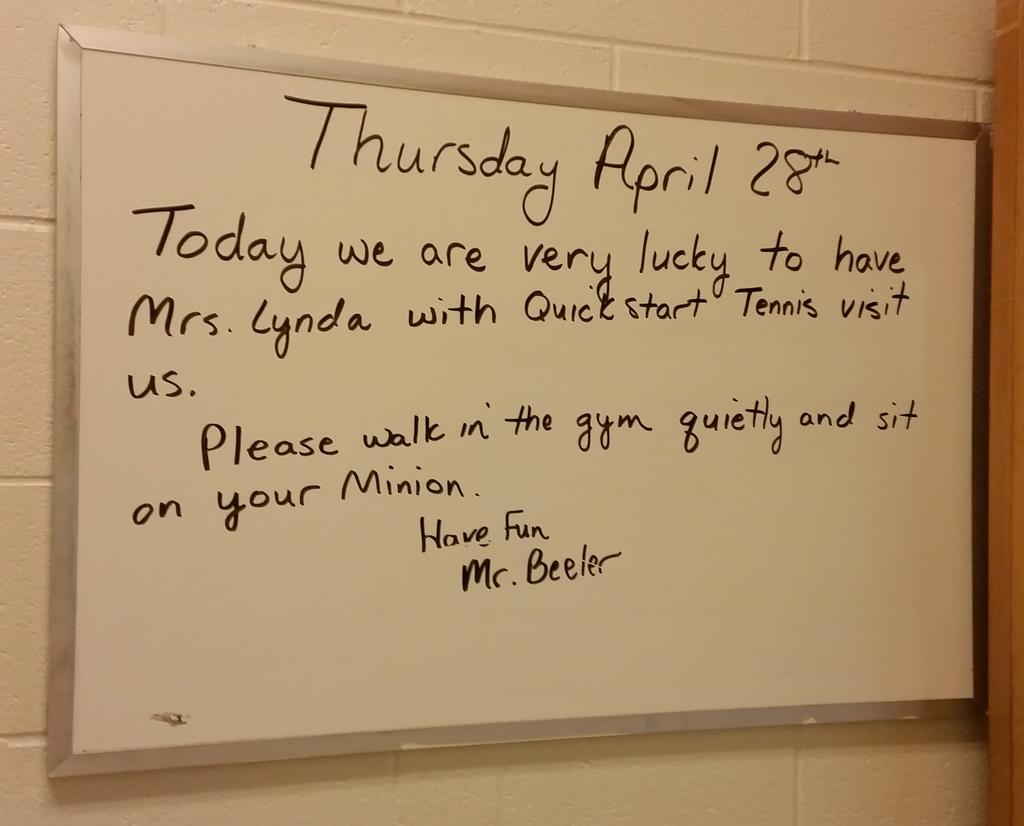 Thursday April 28th
Today we are very lucky to have
Mrs. Lynda with Quickstart Tennis visit
us.
Please walk in the gym quietly and sit
on your Minion.
Have Fun
Mr. Beeler